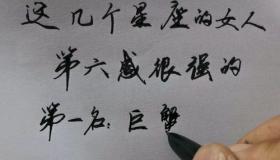 这几个星座的女人
第六感很强的
第一名：巨蟹